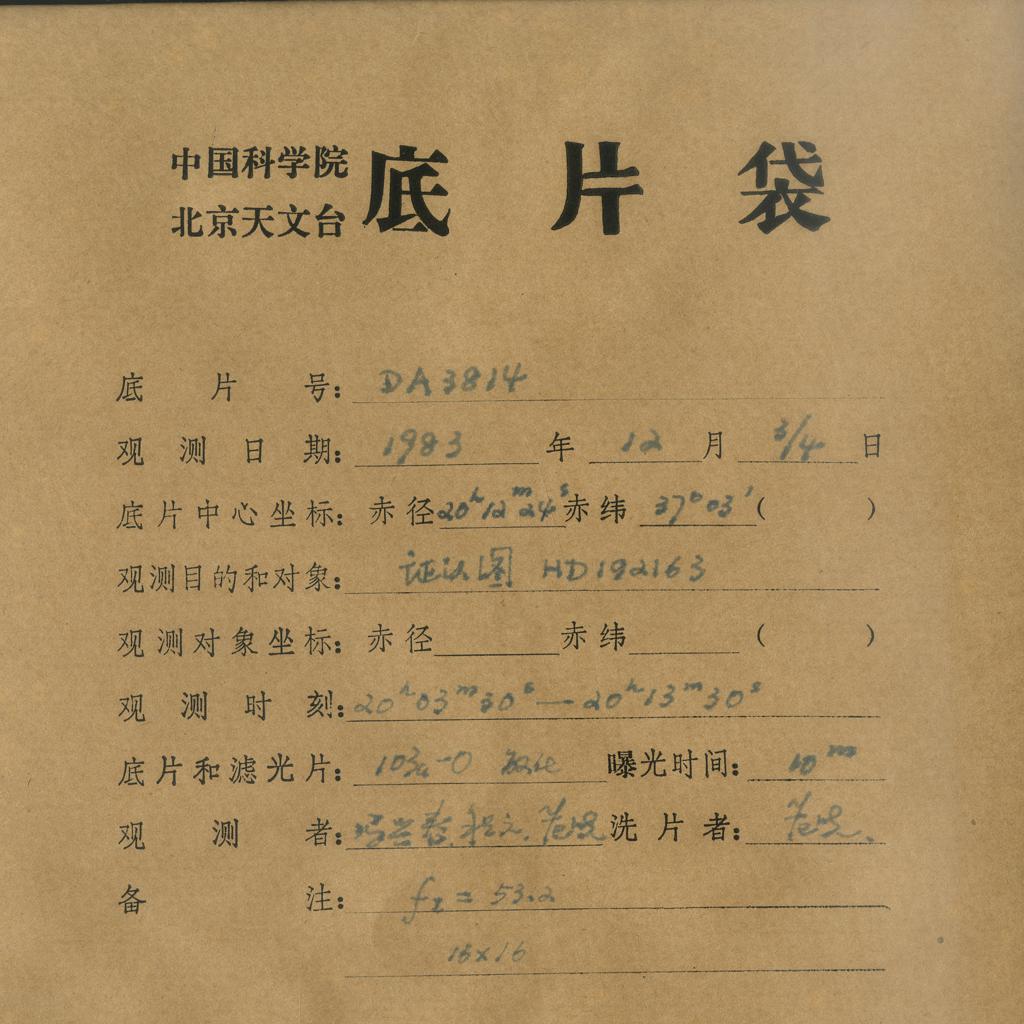 中国科学院
北京天文台
底片袋
底片号: DA3814
观测日期: 1983年12月3/4日
底片中心坐标: 赤径20h12m24s赤纬37°03′( )
观测目的和对象: 证认图 HD192163
观测对象坐标: 赤径 赤纬 ( )
观测时刻: 20h03m30s—20h13m30s
底片和滤光片: 103a-O 敏化 曝光时间: 10m
观测者: 洗片者:
备注: fI = 53.2
16×16